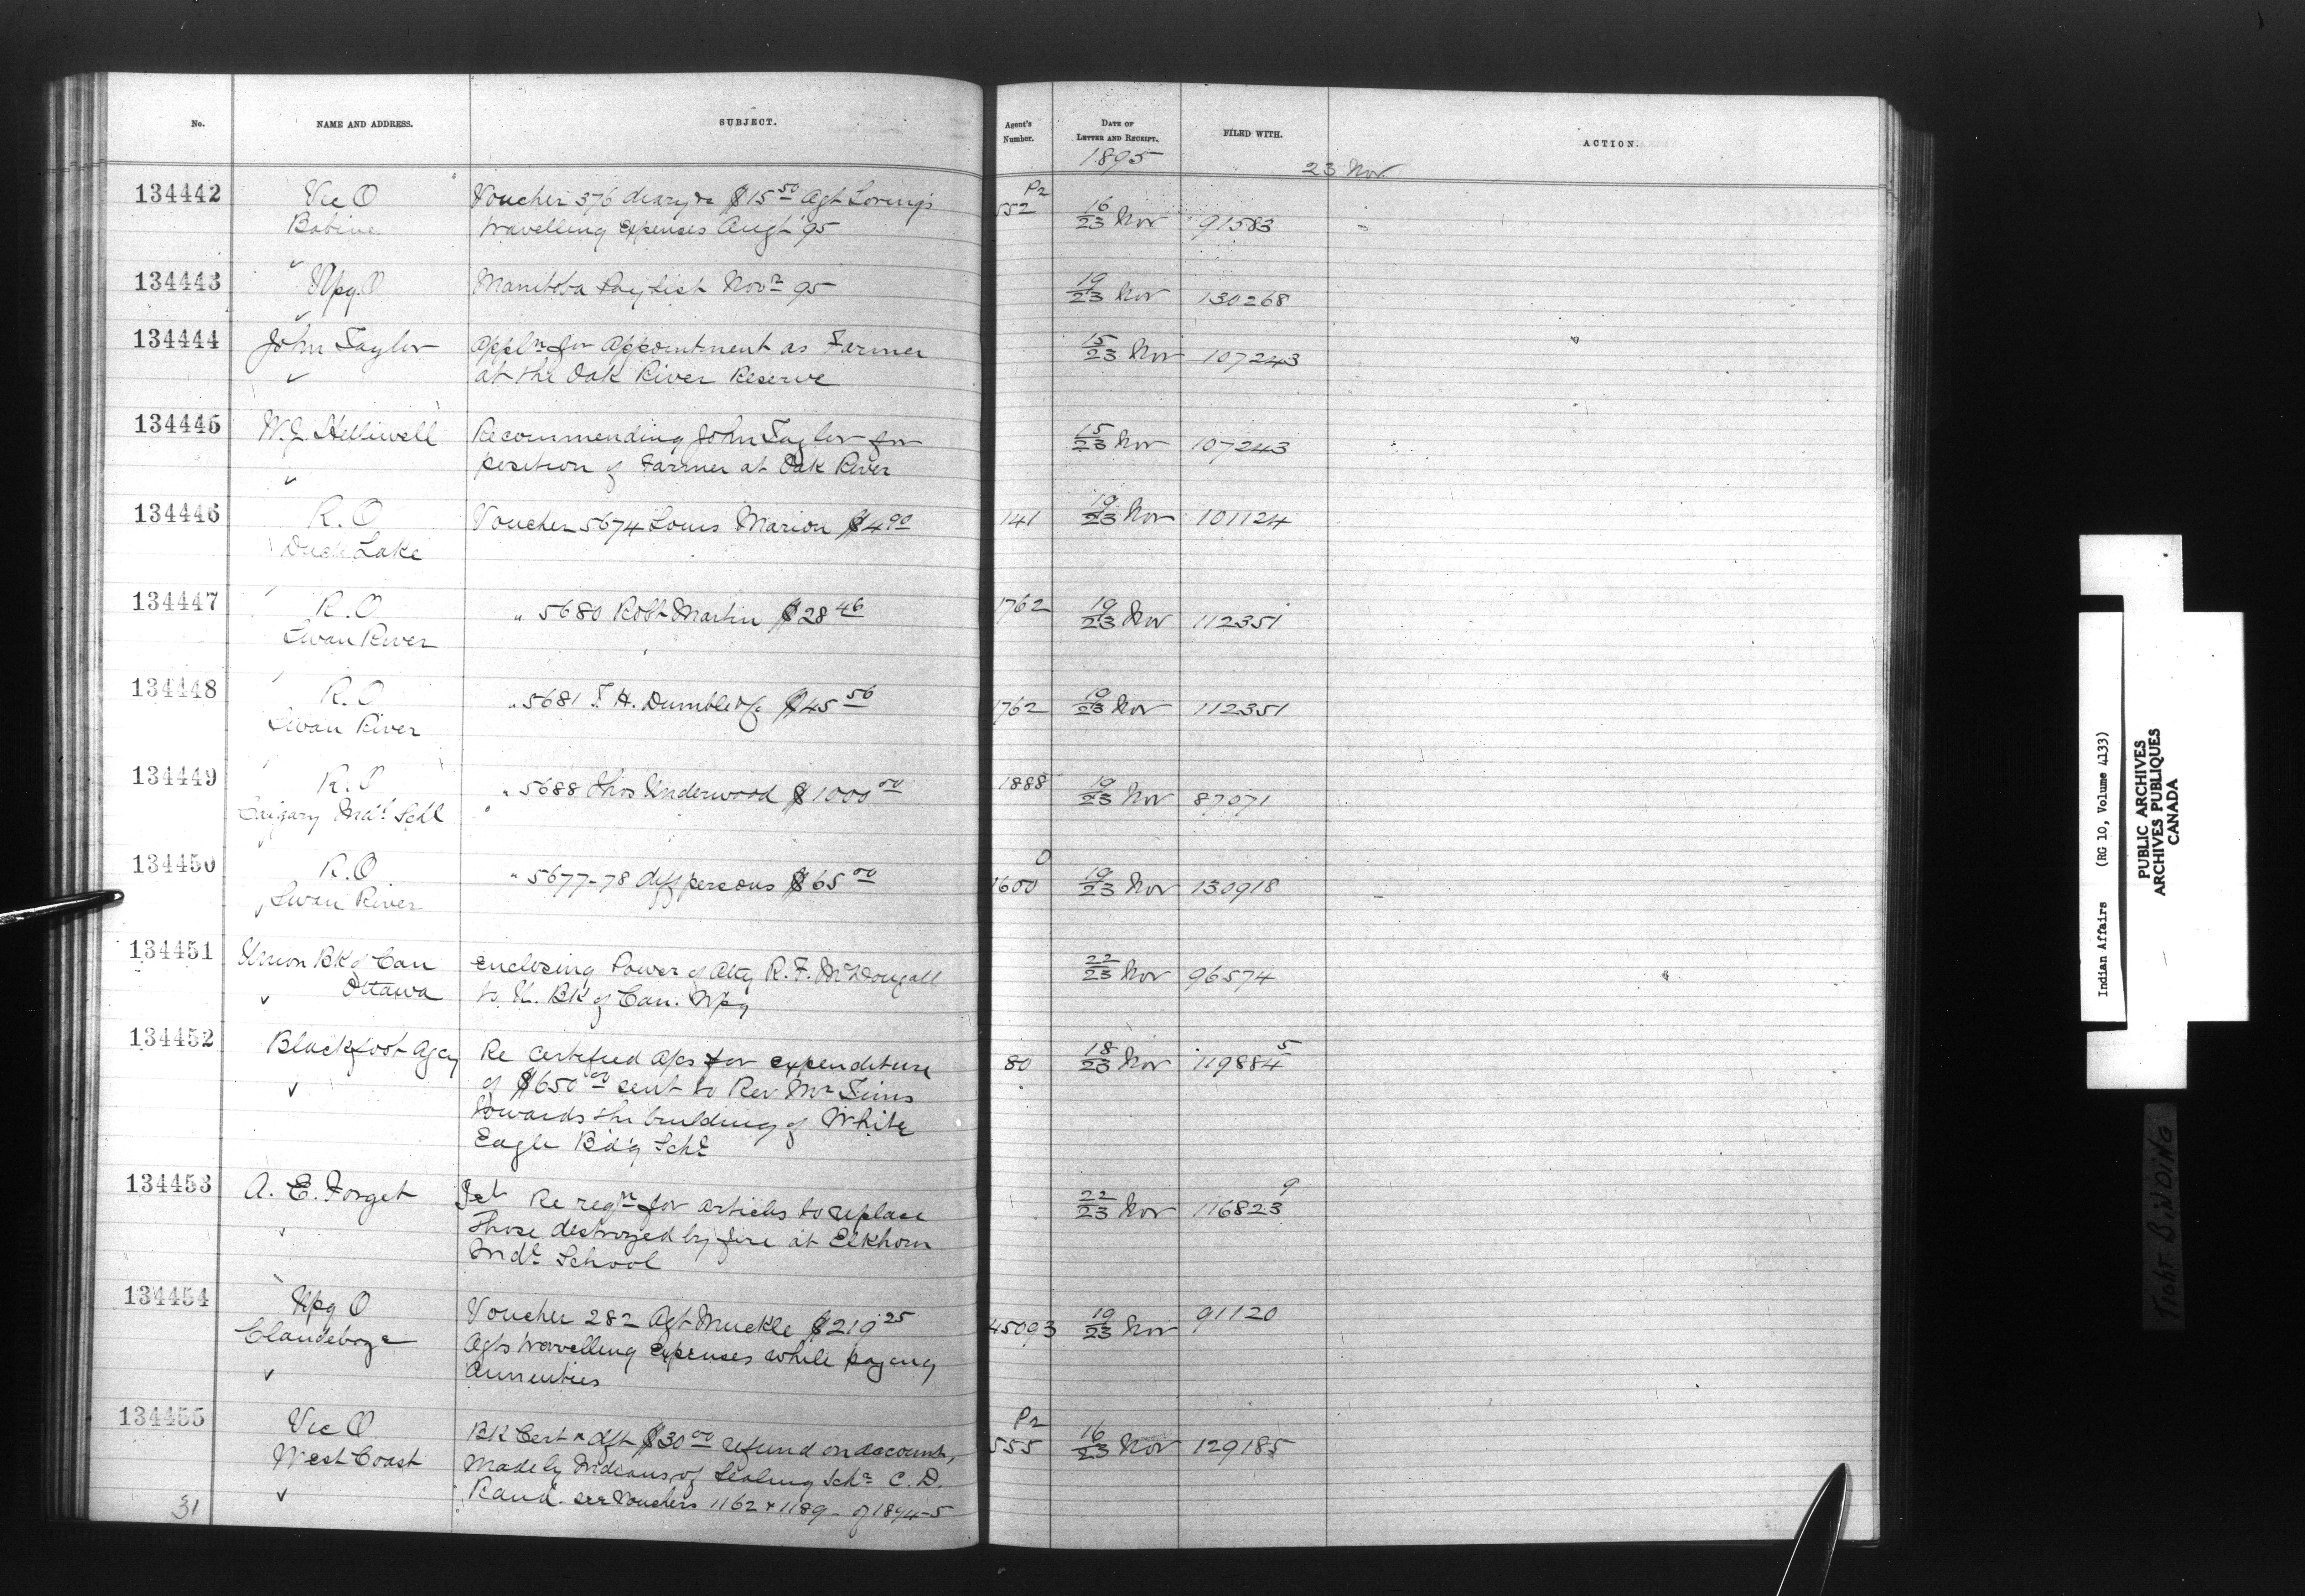 No. NAME AND ADDRESS. SUBJECT. Agent's Number. DATE OF LETTER AND RECEIPT. FILED WITH. ACTION.
1895 23 Nov
134442 Vic O Voucher 376 diary &c $15 50 Agt Loring's P2 552 16/23 Nov 91583
Babine travelling expenses Augt 95
134443 Wpg. O Manitoba Pay List Novr 95 19/23 Nov 130268
134444 John Taylor Appln for appointment as Farmer 15/23 Nov 107243
at the Oak River Reserve
134445 W. J. Helliwell Recommending John Taylor for 15/23 Nov 107243
position of Farmer at Oak River
134446 R. O Voucher 5674 Louis Marion $4 90 141 19/23 Nov 101124
Duck Lake
134447 R. O " 5680 Robt Martin $28 46 1762 19/23 Nov 112351
Swan River
134448 R. O " 5681 T. H. Dumble $45 56 1762 19/23 Nov 112351
Swan River
134449 R. O " 5688 Thos Underwood $1000 00 1888 19/23 Nov 87071
Calgary Indl Schl
134450 R. O " 5677-78 diff persons $65 00 1600 0 19/23 Nov 130918
Swan River
134451 Union BK of Can enclosing Power of Atty R. F. McDougall 22/23 Nov 96574
Ottawa to U. BK of Can. Wpg
134452 Blackfoot Agcy Re certified a/cs for expenditure 80 18/23 Nov 119884 5
of $650 00 sent to Rev Mr Tims
towards the building of White
Eagle Bdg Schl
134453 A. E. Forget Tel Re reqn for articles to replace 22/23 Nov 116823 9
those destroyed by fire at Elkhorn
Indl School
134454 Wpg O Voucher 282 Agt Muckle $219 25 45093 19/23 Nov 91120
Clandeboye Agts travelling expenses while paying
annuities
134455 Vic O BK Cert & dft $30 00 refund on account, P2 555 16/23 Nov 129185
West Coast made by Indians of Sealing Schr C. D.
Rand. see Vouchers 1162 & 1189 of 1894-5
31
Indian Affairs (RG 10, Volume 4133)
PUBLIC ARCHIVES
ARCHIVES PUBLIQUES
CANADA
TIGHT BINDING